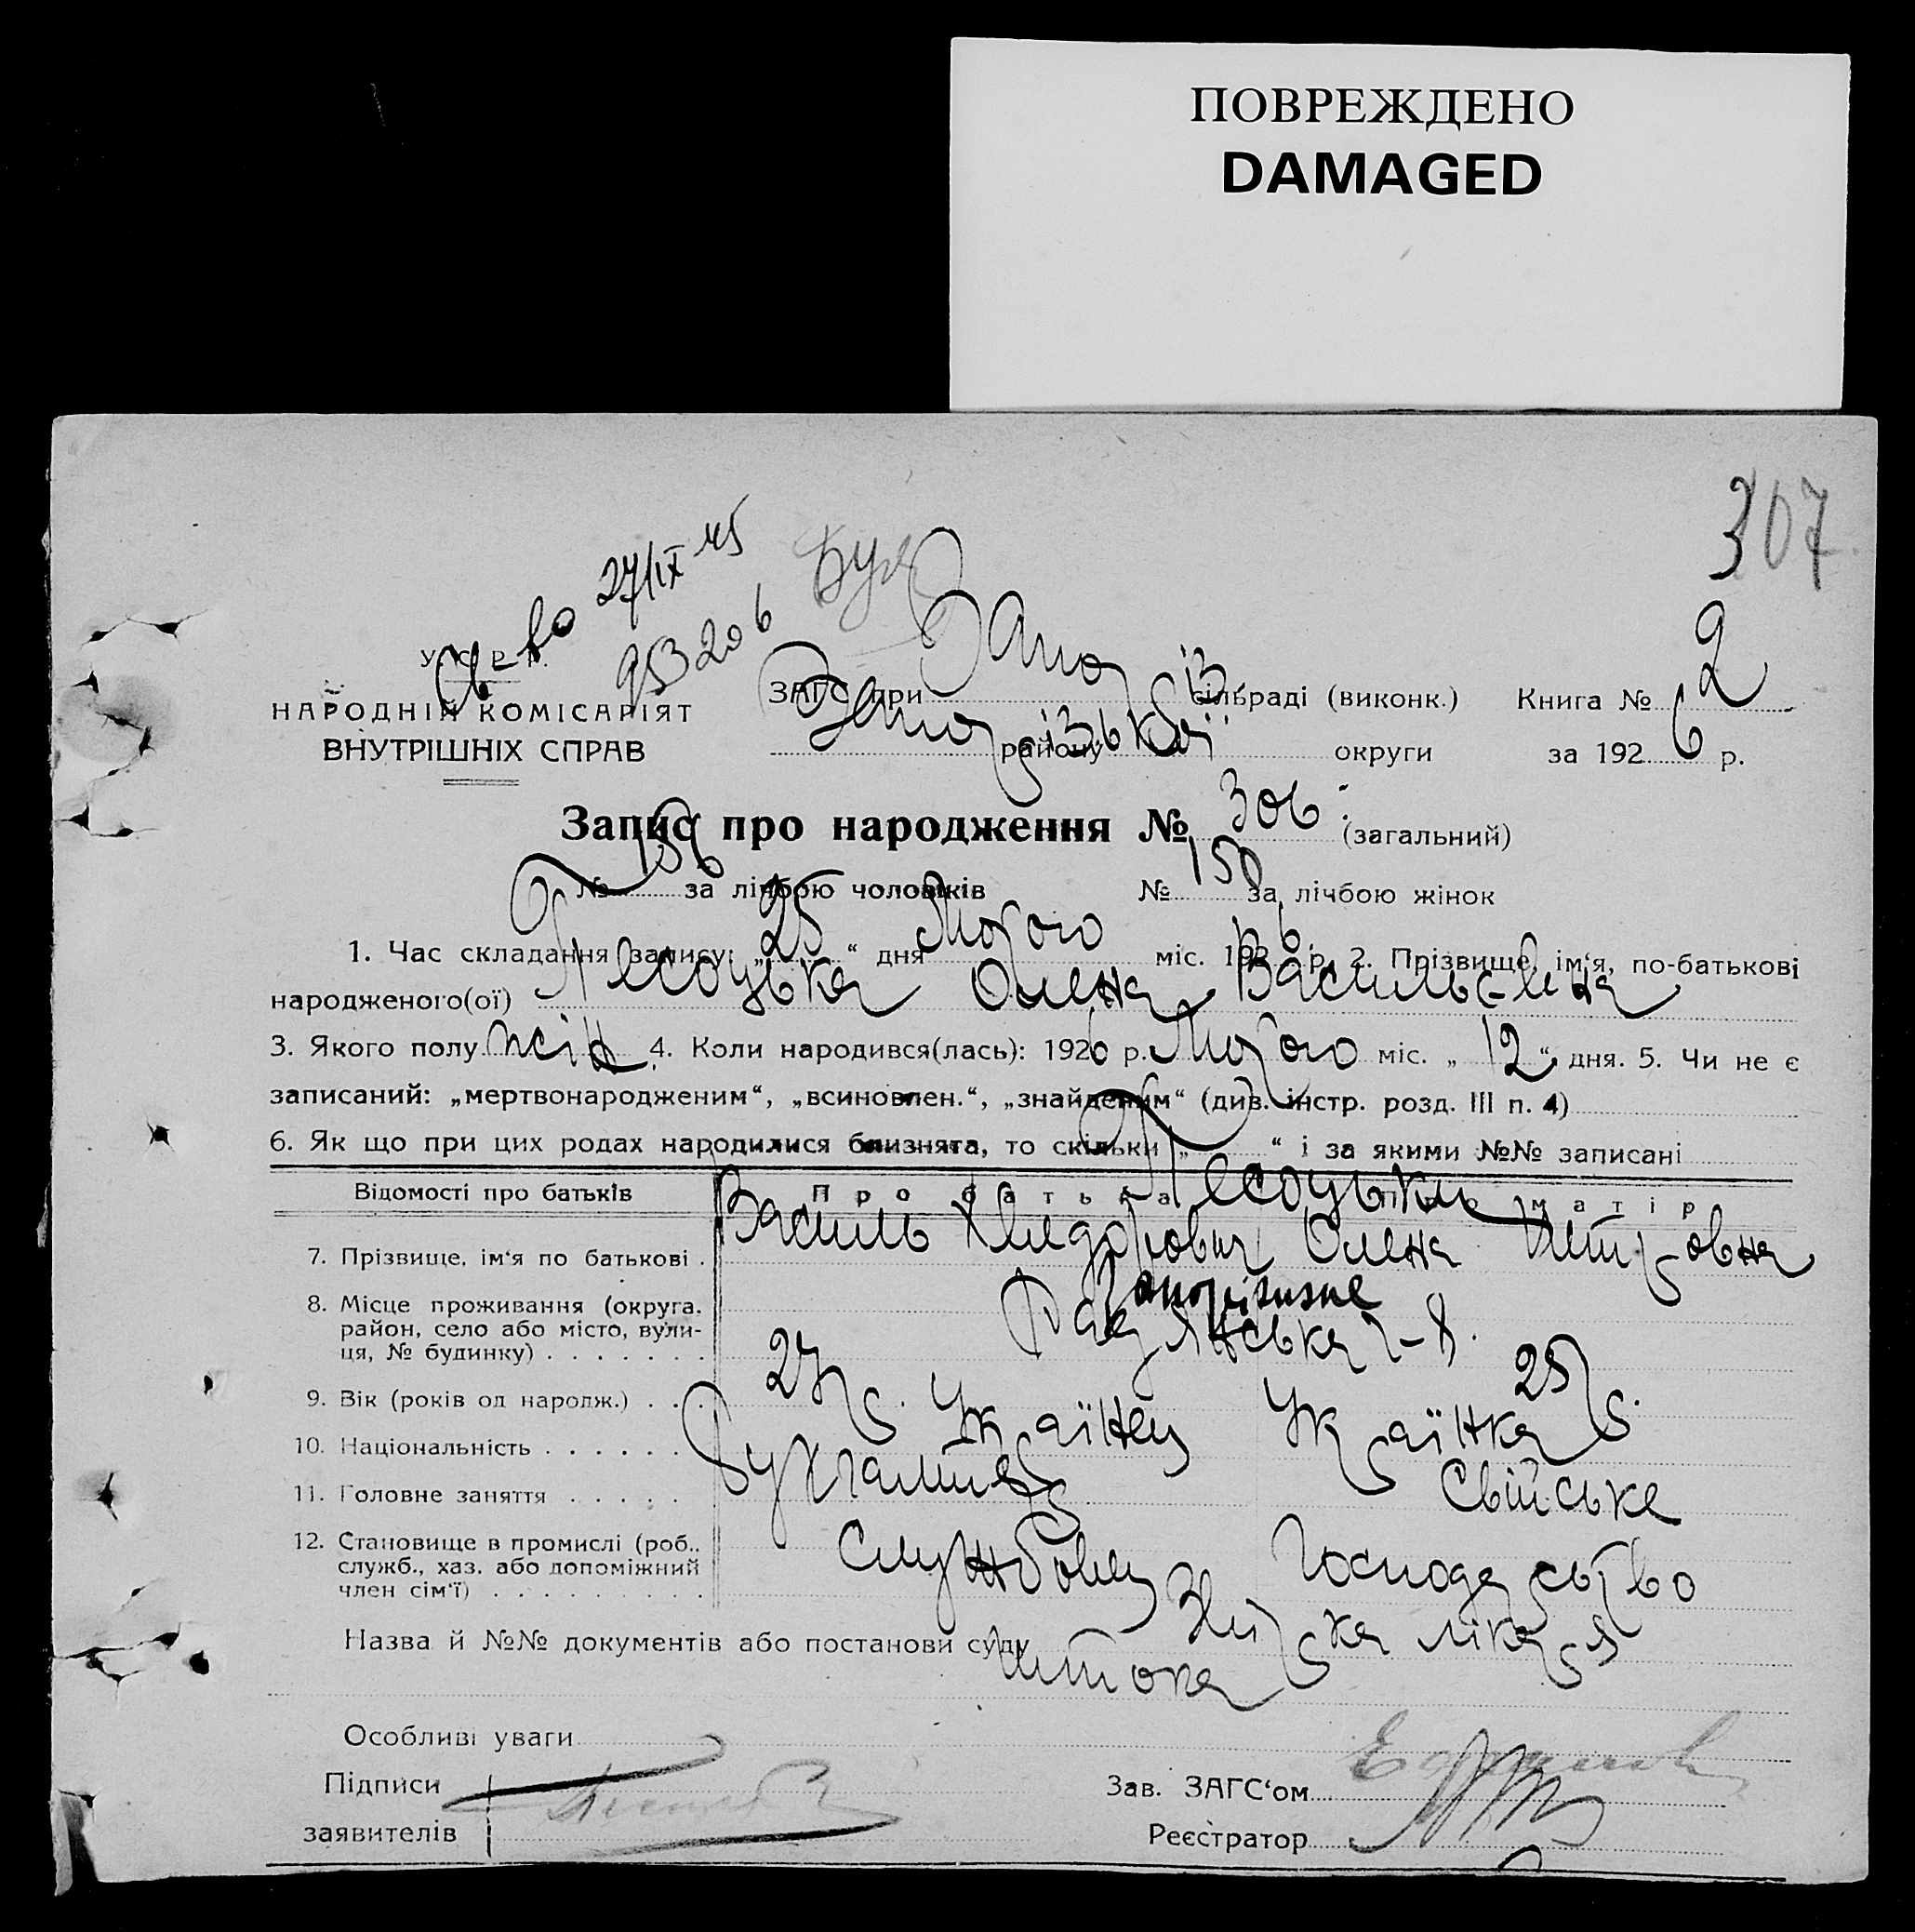 ПОВРЕЖДЕНО
DAMAGED
307
Св-во 27/IX 45
953206
У. С. Р. Р.
НАРОДНІЙ КОМІСАРІЯТ
ВНУТРІШНІХ СПРАВ
ЗАГС при Запоріз. сільраді (виконк.) Книга № 2
Запорізької району округи за 1926 р.
Запис про народження № 306 (загальний)
№ 156 за лічбою чоловіків № 150 за лічбою жінок
1. Час складання запису: „25“ дня Лютого міс. 1926 р. 2. Прізвище, ім‘я, по-батькові
народженого(ої) Пєсоцька Олена Васильєвна
3. Якого полу жін. 4. Коли народився(лась): 1926 р. Лютого міс. „12“ дня. 5. Чи не є
записаний: „мертвонародженим“, „всиновлен.“, „знайденим“ (див. інстр. розд. III п. 4)
6. Як що при цих родах народилися близнята, то скільки „ “ і за якими №№ записані
Відомості про батьків Про батька Про матір
Пєсоцьки
7. Прізвище, ім‘я по батькові Василь Хведорович Олена Петровна
8. Місце проживання (округа, район, село або місто, вулиця, № будинку) Запоріжжє
Радянська
9. Вік (років од народж.) 27 р. 25 р.
10. Національність Українец Українка
11. Головне заняття Бухгалтер Свійське
12. Становище в промислі (роб., служб., хаз. або допоміжний член сім‘ї) Службовец Господарство
Назва й №№ документів або постанови суду лікаря
Особливі уваги
Підписи
заявителів
Зав. ЗАГС‘ом
Реєстратор